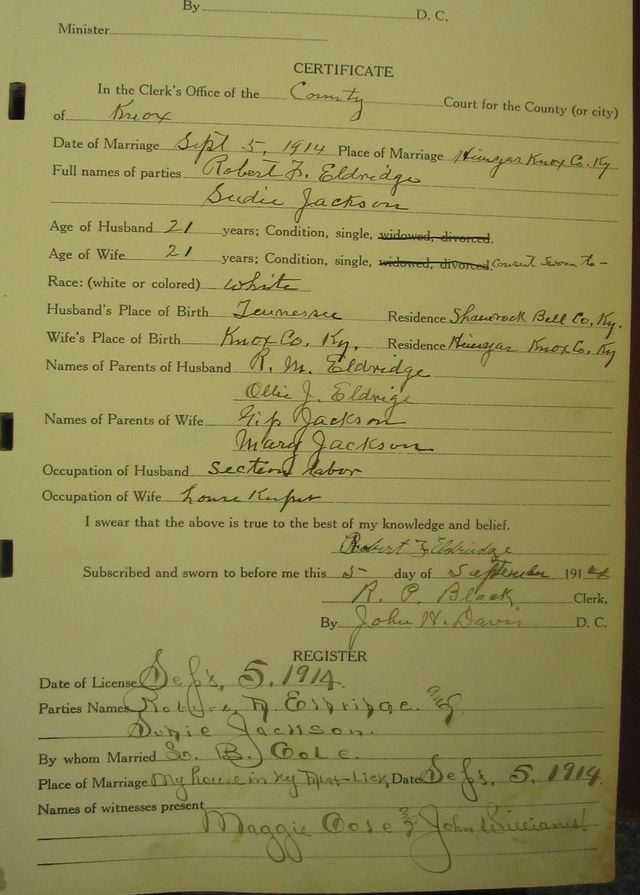 By D. C.
Minister
CERTIFICATE
In the Clerk's Office of the County Court for the County (or city)
of Knox
Date of Marriage Sept 5, 1914 Place of Marriage Hinyar Knox Co. Ky
Full names of parties Robert F. Eldridge
Sudie Jackson
Age of Husband 21 years; Condition, single, widowed, divorced.
Age of Wife 21 years; Condition, single, widowed, divorced. Consent Sworn to -
Race: (white or colored) white
Husband's Place of Birth Tennessee Residence Shamrock Bell Co, Ky.
Wife's Place of Birth Knox Co. Ky. Residence Hinyar Knox Co. Ky
Names of Parents of Husband R. M. Eldridge
Ollie J. Eldrige
Names of Parents of Wife Jackson
Mary Jackson
Occupation of Husband section labor
Occupation of Wife house Keeper
I swear that the above is true to the best of my knowledge and belief.
Robert F Eldridge
Subscribed and sworn to before me this 5 day of September 191
R. P. Black Clerk.
By John H. Davis D. C.
REGISTER
Date of License Sept, 5. 1914.
Parties Names Eldridge. and
Sudie Jackson.
By whom Married B. Cole.
Place of Marriage My house in Ky Lick, Date Sept, 5. 1914.
Names of witnesses present
Maggie Cole and John Williams.